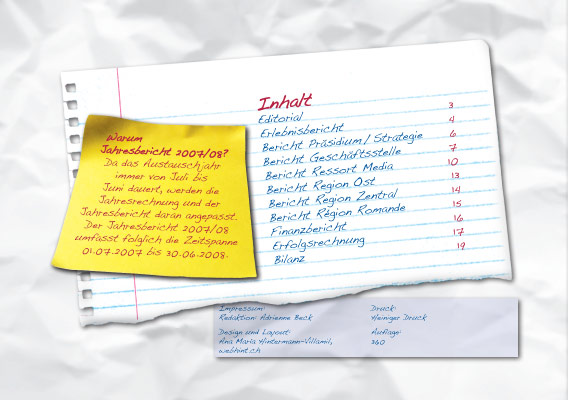 Inhalt
Editorial 3
Erlebnisbericht 4
Bericht Präsidium/Strategie 6
Bericht Geschäftsstelle 7
Bericht Ressort Media 10
Bericht Region Ost 13
Bericht Region Zentral 14
Bericht Région Romande 15
Finanzbericht 16
Erfolgsrechnung 17
Bilanz 19
Warum
Jahresbericht 2007/08?
Da das Austauschjahr
immer von Juli bis
Juni dauert, werden die
Jahresrechnung und der
Jahresbericht daran angepasst.
Der Jahresbericht 2007/08
umfasst folglich die Zeitspanne
01.07.2007 bis 30.06.2008.
Impressum:
Redaktion: Adrienne Beck
Design und Layout:
Ana Maria Hintermann-Villamil,
webhint.ch
Druck:
Heiniger Druck
Auflage:
360